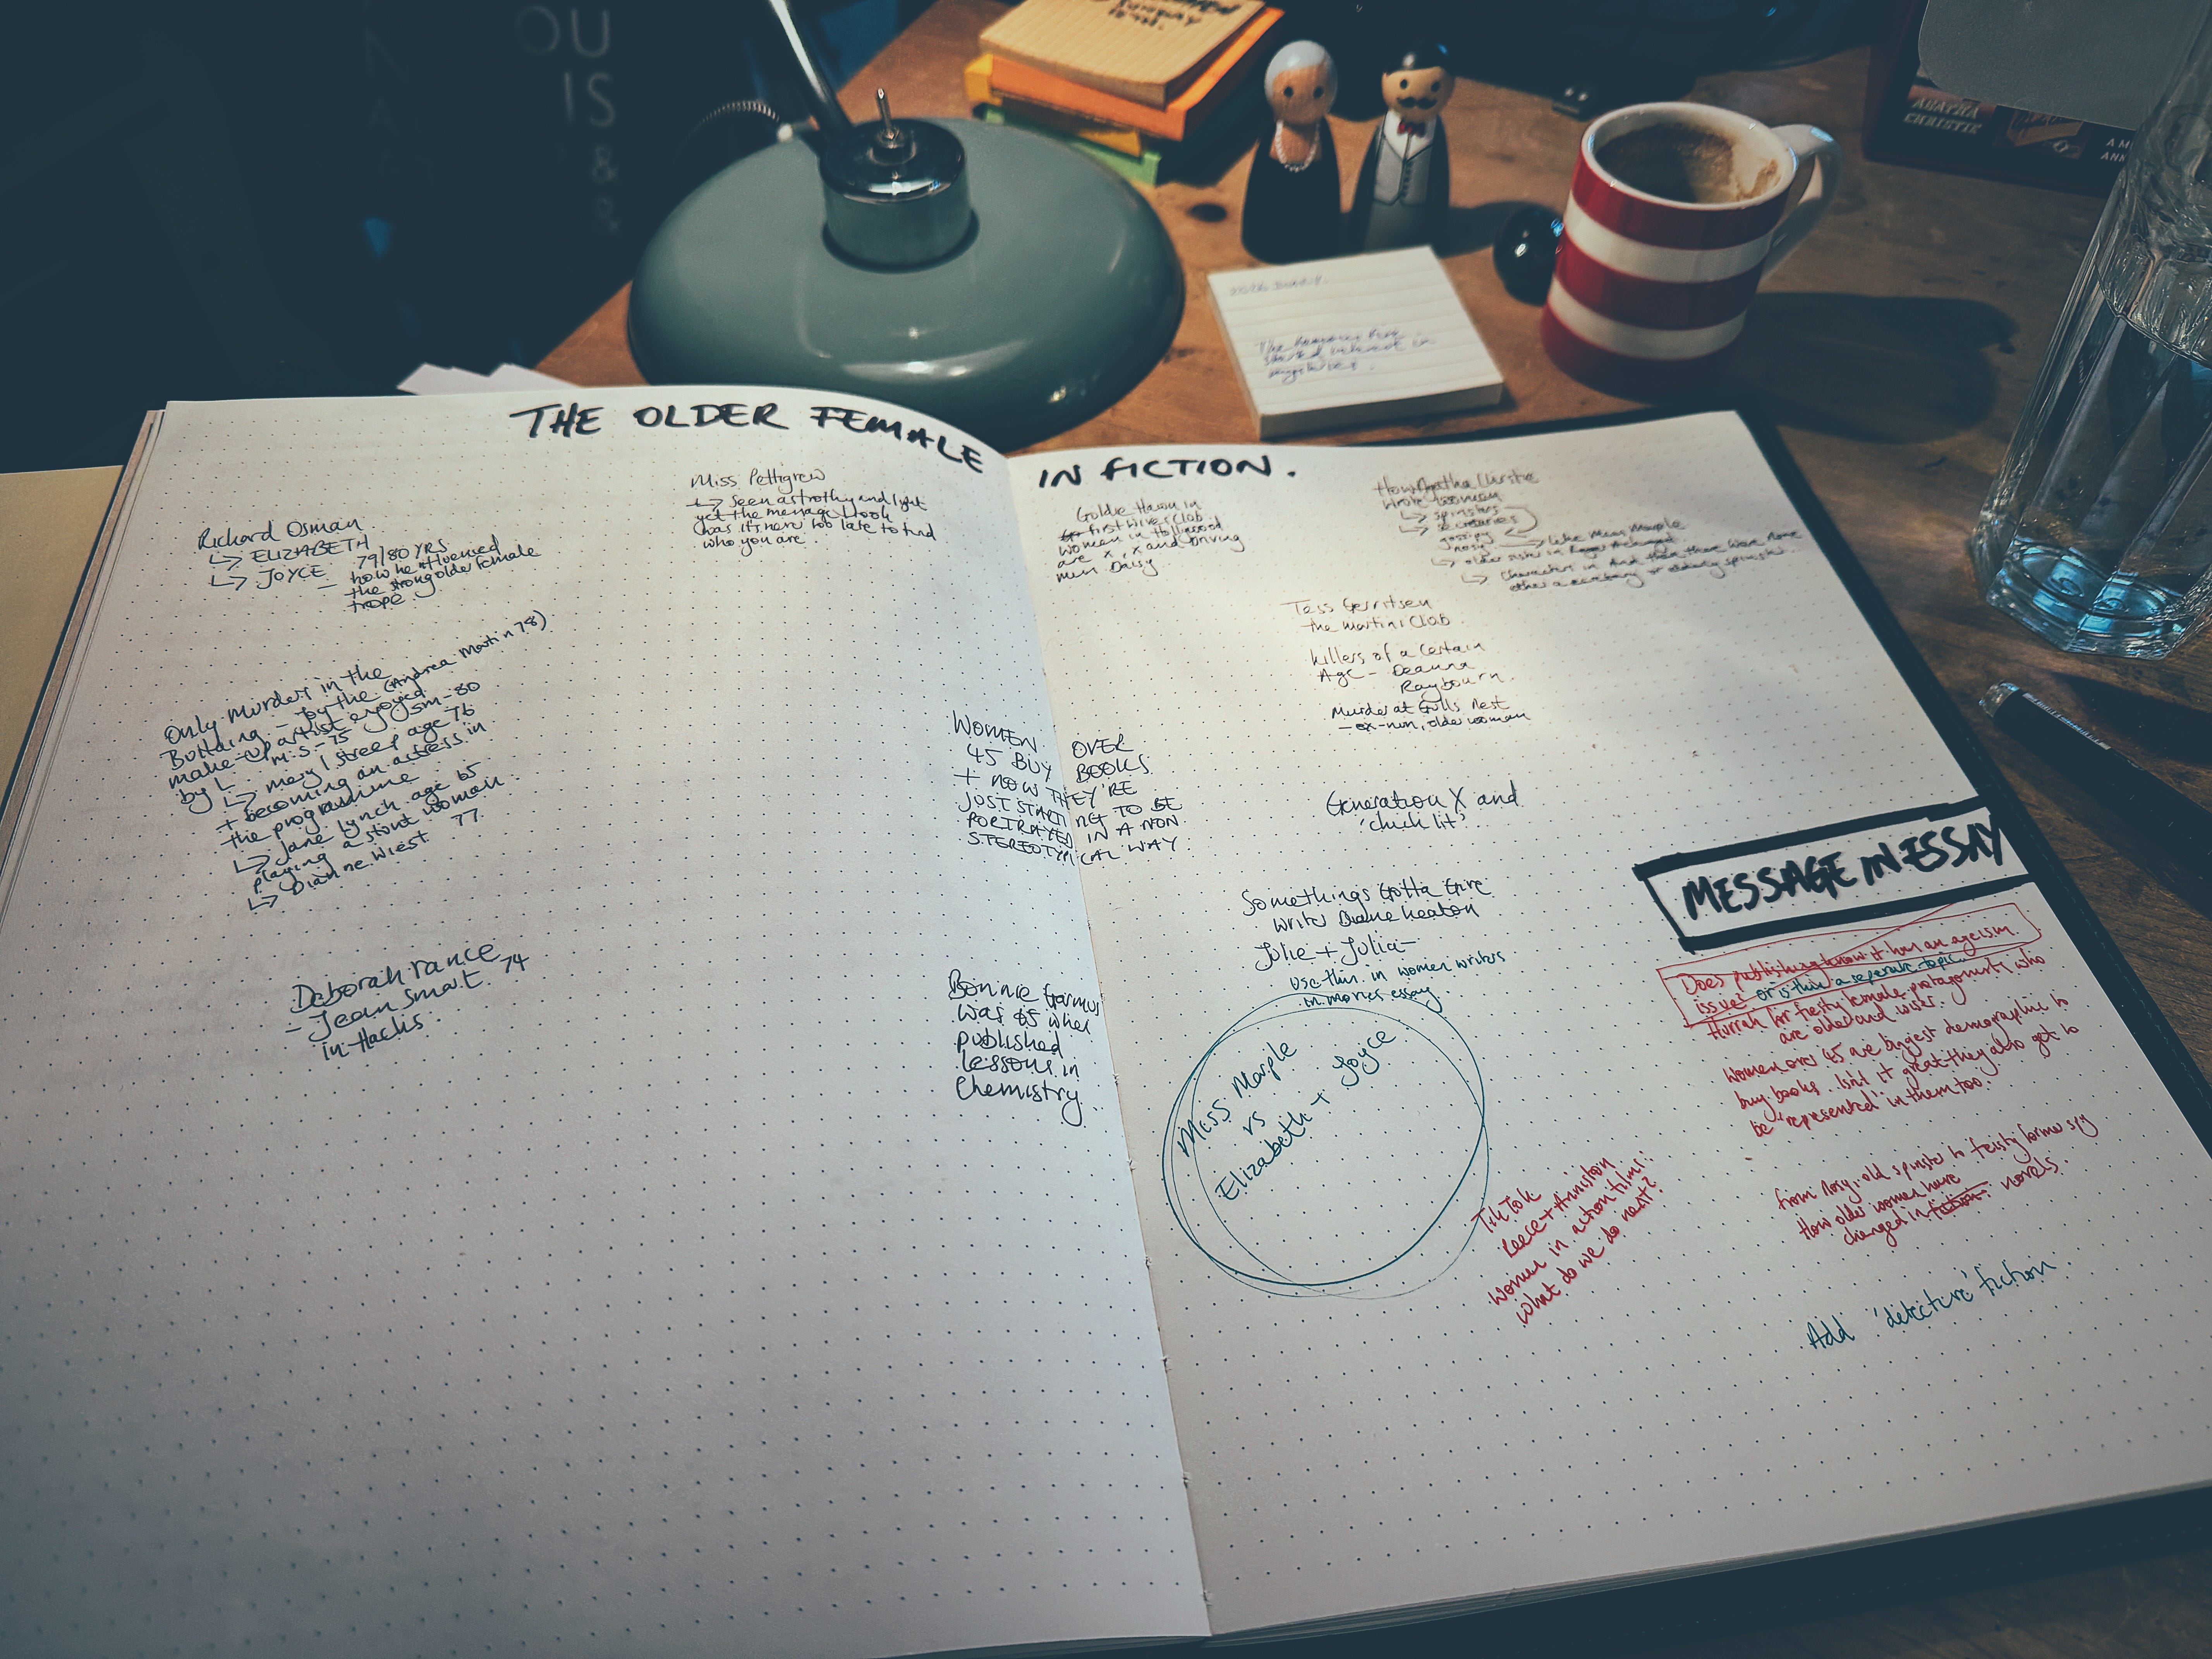 OU
IS
&
&
AGATHA
CHRISTIE
THE OLDER FEMALE IN FICTION.
Richard Osman
↳ ELIZABETH
↳ JOYCE 79/80 YRS
– how he the strong older female
trope
Miss Pettigrew
↳ Seen as frothy and light
yet the message I took
was it's never too late to find
who you are.
Only Murder in the
Building – by the (Andrea Martin 78)
make-up artist enjoyed
by L M.S-75 Jsm-80
↳ Meryl Streep age 76
+ becoming an actress in
the programme
↳ Jane Lynch age 65
playing a stunt woman
↳ Dianne Wiest 77.
Deborah Vance
– Jean Smart 74
in Hacks.
WOMEN OVER
45 BUY BOOKS
+ NOW THEY'RE
JUST STARTING TO BE
PORTRAYED IN A NON
STEREOTYPICAL WAY
Bonnie Garmus
was 65 when
published
Lessons in
Chemistry
Goldie Hawn in
first Wives Club
women in Hollywood
are x, x and Driving
Miss Daisy
How Agatha Christie
wrote women
↳ spinsters
↳ secretaries
gossipy
nosy → like Miss Marple
↳ older sister in Roger Ackroyd
↳ Characters in And then there Were None
either a secretary or elderly spinster.
Tess Gerritsen
the Martini Club
Killers of a Certain
Age – Deanna
Raybourn.
Murder at Gulls Nest
– ex-nun, older woman
Generation X and
'chick lit'
Somethings Gotta Give
writer Diane Keaton
Julie + Julia –
use this in women writers
in movies essay.
Miss Marple
vs
Elizabeth + Joyce
MESSAGE IN ESSAY
Does publishing know it has an ageism
issue? or is this a seperate topic.
Hurrah for feisty female protagonists who
are older and wiser.
Women over 45 are biggest demographic to
buy books. Isn't it great they also get to
be 'represented' in them too.
From nosy, old spinster to feisty former spy
How older women have
changed in fiction. novels.
TikTok
Reece + Anniston
Women in action films:
what do we do next?
Add 'detective' fiction